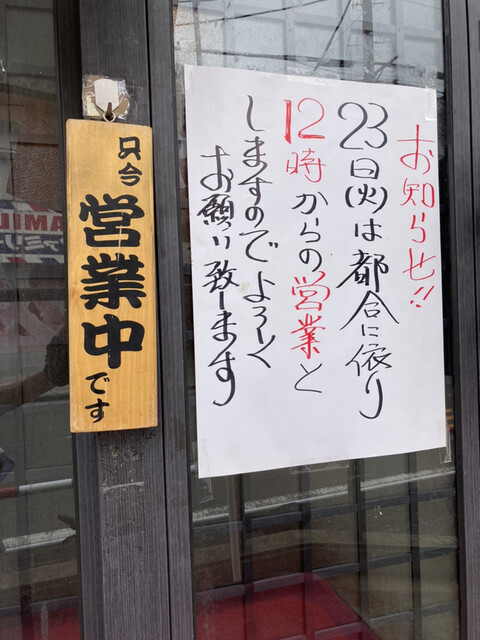 お知らせ!!
23日(火)は都合に依り
12時からの営業と
しますのでよろしく
お願い致します
只今営業中です